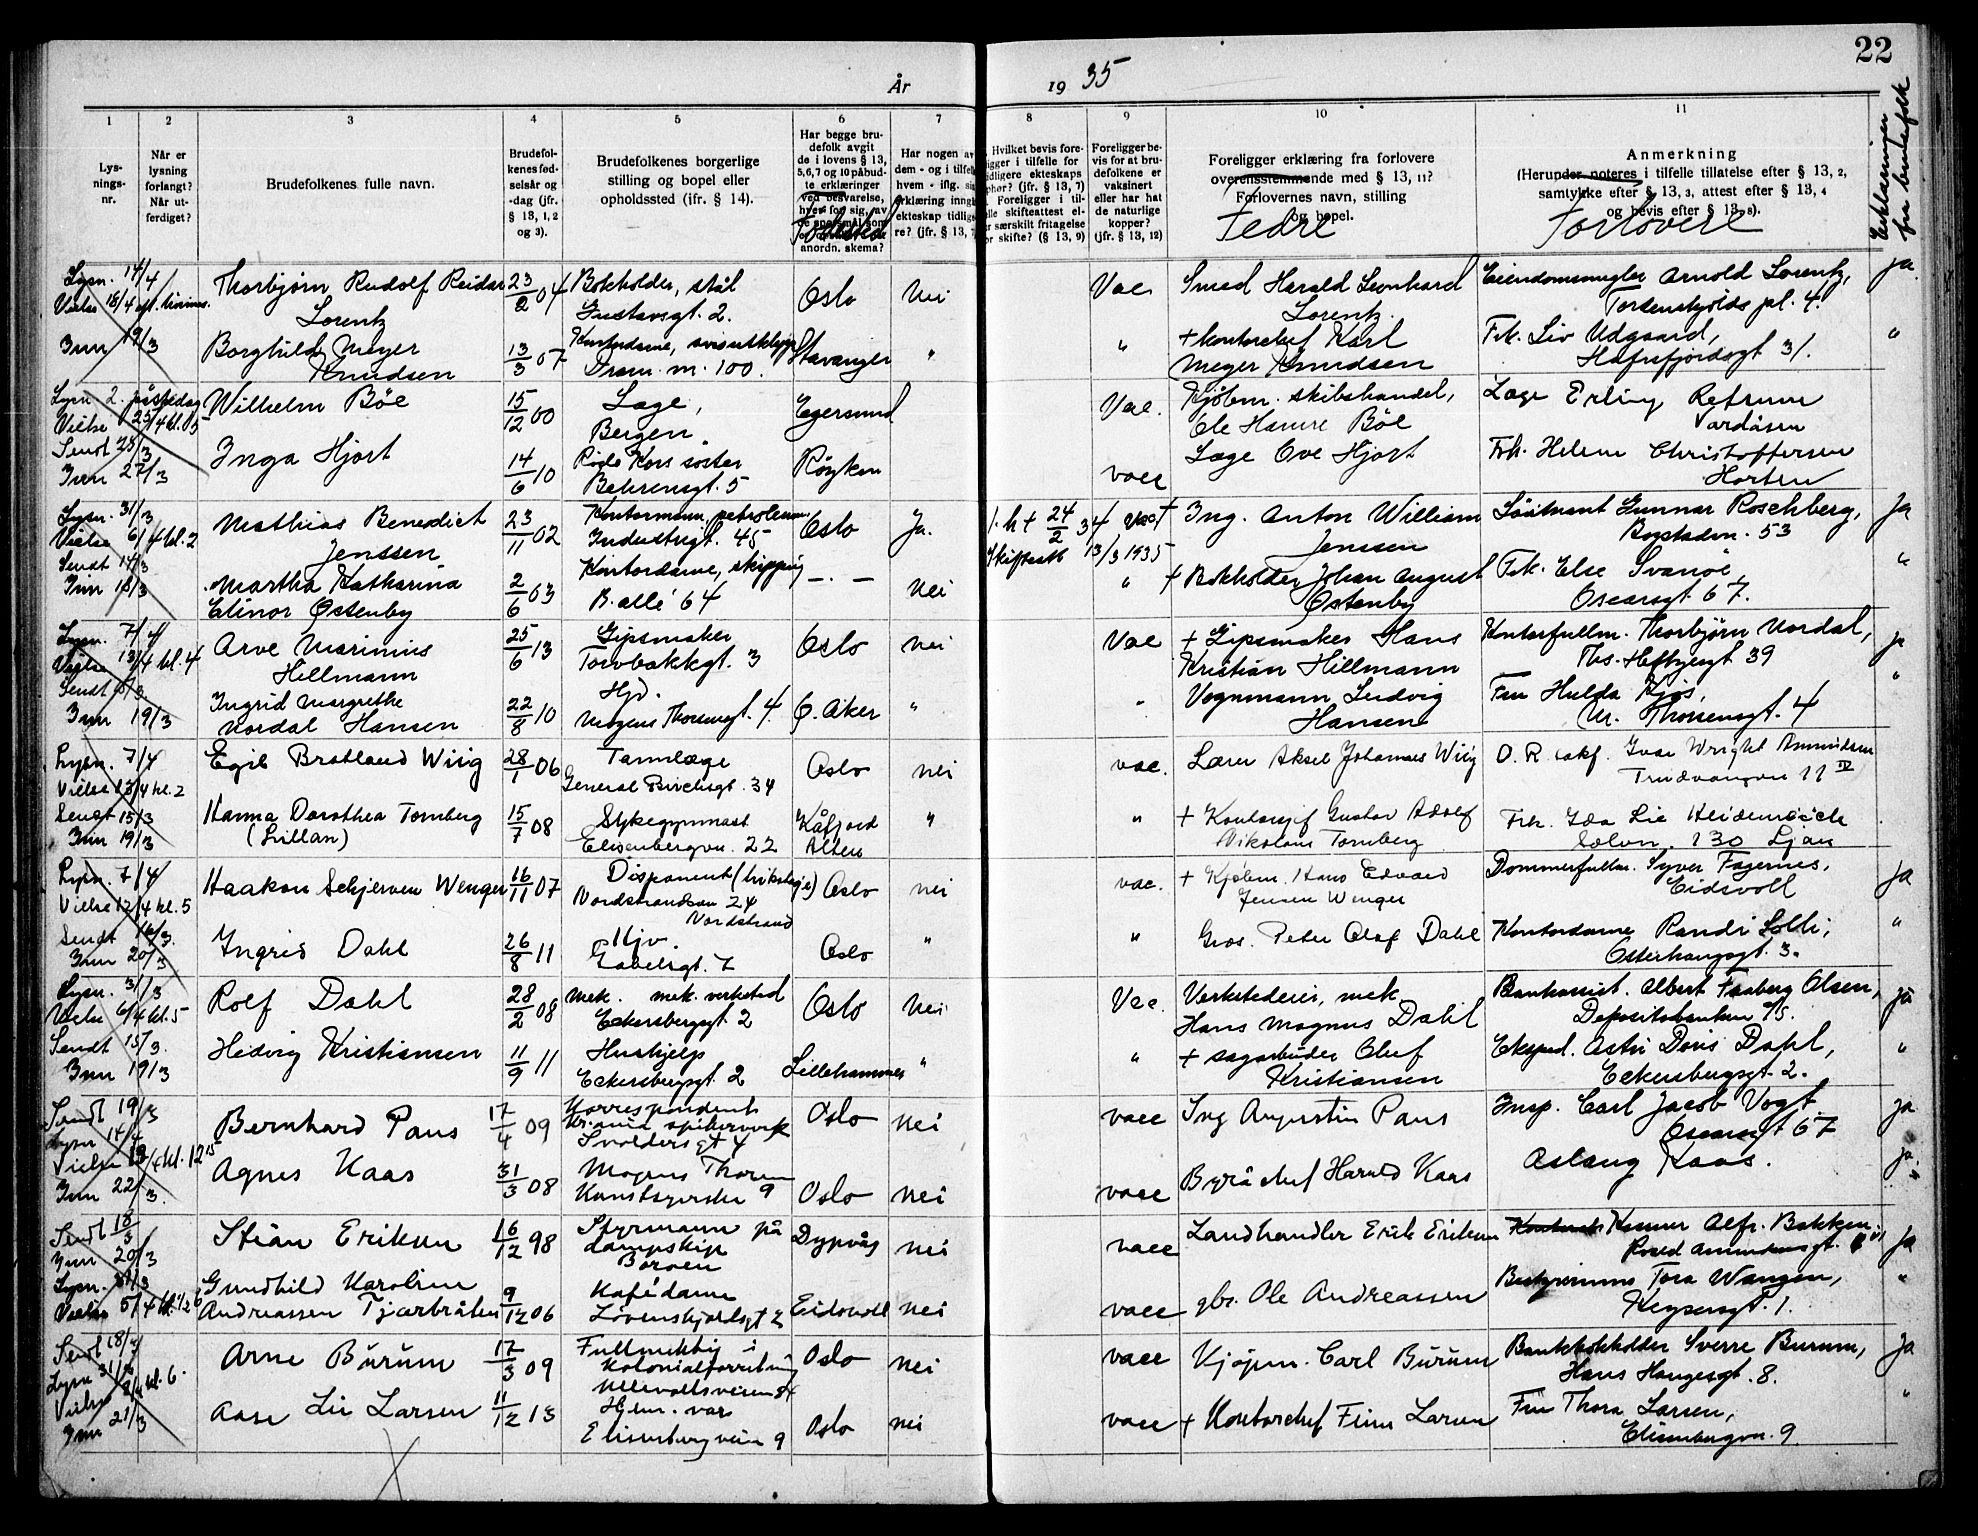 22
År 1935
1 2 3 4 5 6 7 8 9 10 11
Lys-
nings-
nr.
Når er
lysning
forlangt?
Når ut-
ferdiget?
Brudefolkenes fulle navn.
Brudefol-
kenes fød-
selsår og
-dag (jfr.
§ 13, 1, 2
og 3).
Brudefolkenes borgerlige
stilling og bopel eller
opholdssted (ifr. § 14).
Har begge bru-
defolk avgit
de i lovens § 13,
5,6,7 og 10 påbud-
te erklæringer
ved besvarelse,
hver for sig, av
de spørsmål som
anordn. skema?
Fødested
Har nogen av
dem - og i tilfelle
hvem - iflg. sin
erklæring inngå
ekteskap tidlige
re? (jfr. § 13, 7
Hvilket bevis fore-
ligger i tilfelle for
idligere ekteskaps
pher? (jfr. § 13, 7)
Foreligger i til-
elle skifteattest el-
r særskilt fritagelse
or skifte? (§ 13, 9)
Foreligger be-
vis for at bru-
defolkene er
vaksinert
eller har hat
de naturlige
kopper?
(jfr. § 13, 12)
Foreligger erklæring fra forlovere
overensstemmende med § 13, 11?
Forlovernes navn, stilling
og bopel.
Fedre
Anmerkning
(Herunder noteres i tilfelle tillatelse efter § 13, 2,
samtykke efter § 13, 3, attest efter § 13, 4
og bevis efter § 13, 8).
Forlovere
Erklæringer
fra brudefolk
Lysn. 14/4 Thorbjørn Rudolf Reidar 23/2 04 Bokholder, stål Oslo Nei Vac Smed Harald Leonhard Eiendomsmegler Arnold Lorentz, ja
Vielse 18/4 Lorentz Gustavsgt. 2. Lorentz. Tordenskjolds pl. 4.
Inn 19/3 Borghild Meyer 13/3 07 Kontordame, Stavanger " " + Kontorchef Karl Frk. Liv Udgaard, "
Knudsen Dram. m. 100. Meyer Knudsen Hafrsfjordsgt 31.
Lysn 2. påskedag Wilhelm Böe 15/12 00 Læge, Egersund Vac. Kjøbm. skibshandel, Læge Erling Refsum
Vielse 25/4 kl. 5 Bergen. Ole Hamre Böe Vardåsen
Sendt 25/3 Inga Hjort 14/6 10 Røde Kors søster Røyken vacc Læge Ove Hjort Frk. Helene Christoffersen
Inn 27/3 Behrensgt. 5 Horten
Lysn. 31/3 Mathias Benedict 23/11 02 Kontormann, petroleum Oslo Ja. 1. h + 24/2 34 Vac + Ing. Anton William Löitnant Gunnar Roschberg, Ja
Vielse 6/4 kl. 2 Jenssen Industrigt. 45 Skifteatt 13/3 1935 Jenssen Bogstadvn. 53
Sendt 14/3 Martha Katharina 2/6 03 Kontordame, skipping — . — Nei " + Bokholder Johan August Frk. Else Svanöe "
Inn 16/3 Elinor Østenby B. allé 64 Østenby Oscarsgt. 67.
Lysn. 7/4 Arve Marinius 25/6 13 Gipsmaker Oslo nei Vac + Gipsmaker Hans Kontorfullm. Thorbjørn Nordal, ja
Vielse 13/4 kl. 4 Hellmann Torvbakkgt. 3 Kristian Hillmann Ths. Heftyesgt 39
Sendt Ingrid Margrethe 22/8 10 Hjv. Ø. Aker " " Vognmann Ludvig Fru Hulda Kjøs, "
Inn 19/3 Nordal Hansen Mogens Thorsensgt. 4. Hansen M. Thorsensgt. 4
Lysn. 7/4 Egil Bratland Wiig 28/1 06 Tannlæge Oslo nei vac. Lærer Aksel Johannes Wiig O. R. sakf. Ivar Wright Amundsen
Vielse 13/4 kl. 2 General Birchsgt. 34 Trudvangvn 11 IV
Sendt 15/3 Hanna Dorothea Tornberg 15/7 08 Sykegymnast Kåfjord " " + Kontorsjef Gustav Adolf Frk. Ida Lie Heidenreich
Inn 19/3 (Lillan) Elisenbergvn. 22 Alten Nikolaus Tornberg Solvn. 130 Ljan
Lysn. 7/4 Haakon Schjerven Wenger 16/11 07 Disponent Oslo nei vac. + Kjøbm. Hans Edvard Dommerfullm. Syver Fagernes, ja
Vielse 12/4 kl. 5 Nordstrandvn 24 Jensen Wenger Eidsvoll
Nordstrand
Sendt 16/3. Ingrid Dahl 26/8 11 Hjv. Oslo " " Gros. Peter Olaf Dahl Kontordame Randi Solli, "
Inn 20/3 Gabelsgt. 7 Osterhausgt. 3.
Lysn. 31/3 Rolf Dahl 28/2 08 Mek. mek. verksted Oslo Nei Vac. Verkstedeier, mek Bankassist. Albert Faaberg Olsen, ja
Vielse 6/4 kl. 5 Eckersbergsgt 2 Hans Magnus Dahl Depositobanken
Sendt 15/3. Hedvig Kristiansen 11/9 11 Hushjelp Lillehammer " " + sagarbeider Oluf Eksped. Astri Doris Dahl, "
Inn 19/3 Eckersbergsgt. 2 Kristiansen Eckersbergsgt. 2.
Sendt 19/3 Bernhard Paus 17/4 09 Korrespondent Oslo nei vacc Ing Augustin Paus Insp. Carl Jacob Vogt ja
Lysn 14/4 Kr.ania spikerverk Oscarsgt 67
Svoldersgt 4
Vielse kl. 12 15 Agnes Kaas 31/3 08 Mogens Thorsen Oslo nei vacc Byråchef Harald Kaas Aslaug Kaas. ja
Inn 22/3. Kunstsyerske 9
Sendt 18/3 Stian Eriksen 16/12 98 Styrmann på Dypvåg nei vacc Landhandler Erik Eriksen Kemner Alfr. Bakken. ja
Inn 20/3 dampskip Roald Amundsensgt.
Boroen
Lysn. 31/3 Gundhild Karoline 9/12 06 Kafédame Eidsvoll nei vacc gbr. Ole Andreassen Bestyrerinne Tora Wangen, "
Vielse 5/4 kl. 1/2 6 Andreassen Tjærbråten Løvenskjoldsgt 2 Keysersgt. 1.
Sendt 18/3 Arne Bûrûm 17/3 09 Fullmektig i Oslo nei vacc Kjøpm. Carl Bûrûm Bankbokholder Sverre Burum, Ja
Lysn 31/3 Kolonialforretning Hans Haugesgt. 8.
Vielse 8/4 kl. 6. Ullevollsveien 84
Inn 21/3 Aase Lie Larsen 11/12 13 Hjem. vær. Oslo nei vacc + Kontorchef Finn Larsen Fru Thora Larsen, "
Elisenbergveien 9 Elisenbergvn. 9.